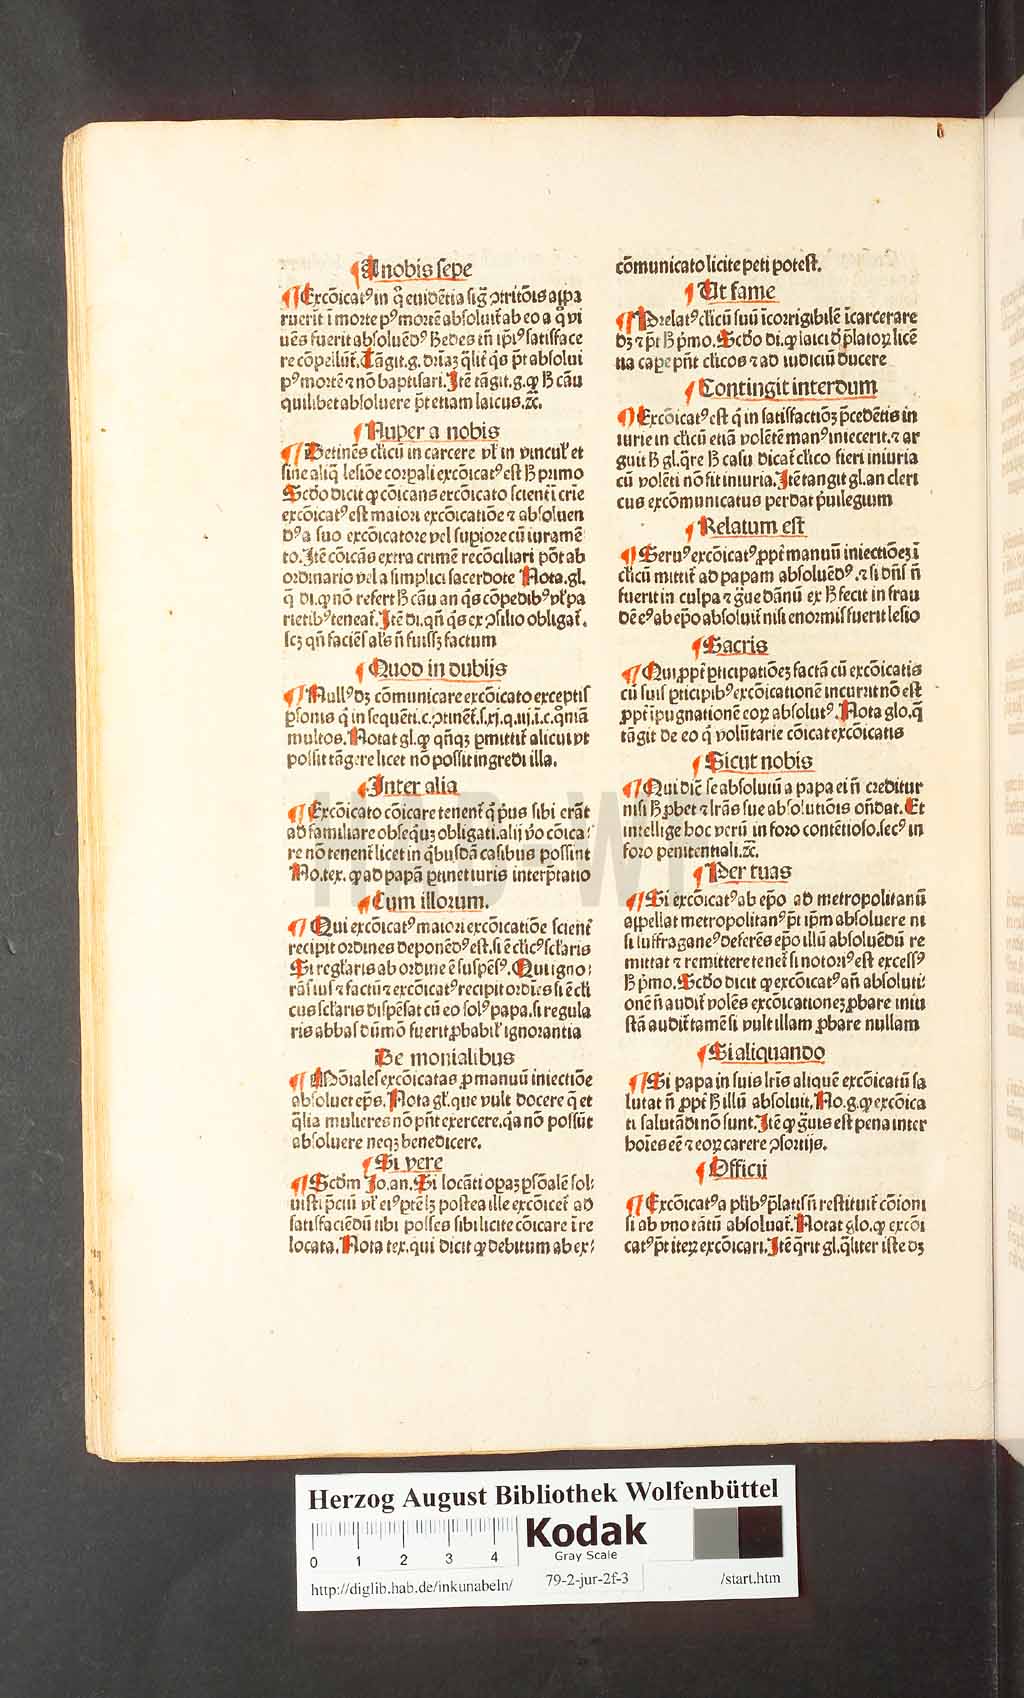 ¶A nobis sepe
¶Excōicatꝰ in q̄ euidētia sig̃ ꝯtritōis appa
ruerit ī morte pꝰ mortē absoluit̄ ab eo a q̄ vi
uēs fuerit absoluēdꝰ
re cōpellūt̄. Tāgit. g.
pꝰ mortē ⁊ nō baptisari. Itē tāgit. g. ꝙ
quilibet absoluere p̄t etiam laicus. ⁊c̄.
¶Nuper a nobis
¶Detinēs cl̄icū in carcere vl̓ in vincul̓ et
sine aliq̄ lesiōe corꝑali excōicatꝰ est
Scd̄o dicit ꝙ cōicans excōicato scienti ī crīe
excōicatꝰ est maiori excōicatiōe ⁊ absoluen
dꝰ a suo excōicatore vel supiore cū iuramē
to. Itē cōicās extra crimē recōciliari pōt ab
ordinario vel a simplici sacerdote Nota. gl.
q̄ di. ꝙ nō refert
rietibꝰ teneat̄. Itē di. qn̄ q̄s ex ꝯsilio obligat̄.
scꝫ qn̄ faciēs al̓s n̄ fuissꝫ factum
¶Quod in dubijs
¶Nullꝰ dꝫ cōmunicare excōicato exceptis
ꝑsonis q̄ in sequēti. c. ꝯtinēt̄. s. xj. q. iij. ī. c. q̄niā
multos. Notat gl. ꝙ qn̄qꝫ ꝑmittit̄ alicui vt
possit tāgere licet nō possit ingredi illa.
¶Inter alia
¶Excōicato cōicare tenent̄ q̄ p̄us sibi erāt
ad familiare obsequꝫ obligati. alij ṽo cōica⸗
re nō tenent̄ licet in q̄busdā casibus possint
No. tex. ꝙ ad papā ꝑtinet iuris interp̄tatio
¶Cum illorum.
¶Qui excōicatꝰ maiori excōicatiōe scient̄
recipit ordines deponēdꝰ est. si ē cl̄icꝰ scl̓aris
Si regl̓aris ab ordine ē suspēsꝰ. Qui igno⸗
rās ius ⁊ factū ⁊ excōicatꝰ recipit ordīes si ē cl̄i
cus scl̓aris dispēsat cū eo solꝰ papa. si regula
ris abbas dūmō fuerit ꝓbabil̓ ignorantia
De monialibus
¶Mōiales excōicatas ꝓ manuū iniectiōe
absoluet ep̄s. Nota gl̓. que vult docere q̄ et
q̄lia mulieres nō pn̄t exercere. q̄a nō possūt
absoluere neqꝫ benedicere.
¶Si vere
¶Scdm̄ Jo. an. Si locāti opaꝫ ꝑsōalē sol⸗
uisti p̄ciū vl̓ eiꝰ ꝑtēꝫ postea ille excōicet̄ ad
satisfaciēdū tibi posses sibi licite cōicare ī re
locata. Nota tex. qui dicit ꝙ debitum ab ex⸗
cōmunicato licite peti potest.
¶Ut fame
¶Prelatꝰ cl̄icū suū īcorrigibilē īcarcerare
dꝫ ⁊ p̄t
ua cape pn̄t cl̄icos ⁊ ad iudiciū ducere
¶Contingit interdum
¶Excōicatꝰ est q̄ in satisfactiōꝫ p̄cedētis in
iurie in cl̄icū etiā volētē manꝰ iniecerit. ⁊ ar
guit
cū volēti nō fit iniuria. Itē tangit gl. an cleri
cus excōmunicatus perdat p̄uilegium
¶Relatum est
¶Seruꝰ excōicatꝰ ꝓpt̄ manuū iniectiōeꝫ ī
cl̄icū mittit̄ ad papam absoluēdꝰ. ⁊ si dn̄s n̄
fuerit in culpa ⁊ g̃ue dānū ex
dē eꝰ ab ep̄o absoluit̄ nisi enormis fuerit lesio
¶Sacris
¶Qui ꝓpt̄ ꝑticipatiōeꝫ factā cū excōicatis
cū suis ꝑticipibꝰ excōicationē incurrit nō est
ꝓpt̄ īpugnationē eoꝝ absolutꝰ. Nota glo. q̄
tāgit de eo q̄ volūtarie cōicat excōicatis
¶Sicut nobis
¶Qui dic̄ se absolutū a papa ei n̄ creditur
nisi
intellige hoc verū in foro contētioso. secꝰ in
foro penitentiali. ⁊c̄.
¶Per tuas
¶Si excōicatꝰ ab ep̄o ad metropolitanū
appellat metropolitanꝰ p̄t ip̄m absoluere ni
si suffraganeꝰ deferēs ep̄o illū absoluēdū re
mittat ⁊ remittere tenet̄ si notoriꝰ est excessꝰ
Scd̄o dicit ꝙ excōicatꝰ an̄ absoluti⸗
onē n̄ audit̄ volēs excōicationeꝫ ꝓbare iniu
stā audit̄ tamē si vult illam ꝓbare nullam
¶Si aliquando
¶Si papa in suis lr̄is aliquē excōicatū sa
lutat n̄ ꝓpt̄
ti salutādi nō sunt. Itē ꝙ g̃uis est pena inter
hoīes eē ⁊ eoꝝ carere ꝯsortijs.
¶Officij
¶Excōicatꝰ a pl̓ibꝰ p̄latis n̄ restituit̄ cōioni
si ab vno tātū absoluat̄. Notat glo. ꝙ excōi
catꝰ p̄t iteꝝ excōicari. Itē q̄rit gl. q̄liter iste dꝫ
HAB-W
Herzog August Bibliothek Wolfenbüttel
Kodak
Gray Scale
0 1 2 3 4
http://diglib.hab.de/inkunabeln/ 79-2-jur-2f-3 /start.htm